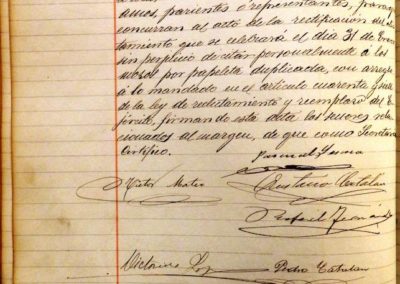 amos, parientes ó representantes, para que
concurran al acto de la rectificacion del alis
tamiento que se celebrará el dia 31 de Enero
sin perjuicio de citar personalmente á los
mozos por papeleta duplicada, con arreglo
á lo mandado en el articulo cuarenta y
de la ley de reclutamiento y reemplazo del E
jército, firmando esta acta los señores rela
cionados al margen, de que como Secretario
Certifico.
Pascual
Victor Mateo
Catalan
Rafael Fernández
Victorino
Pedro Catalan